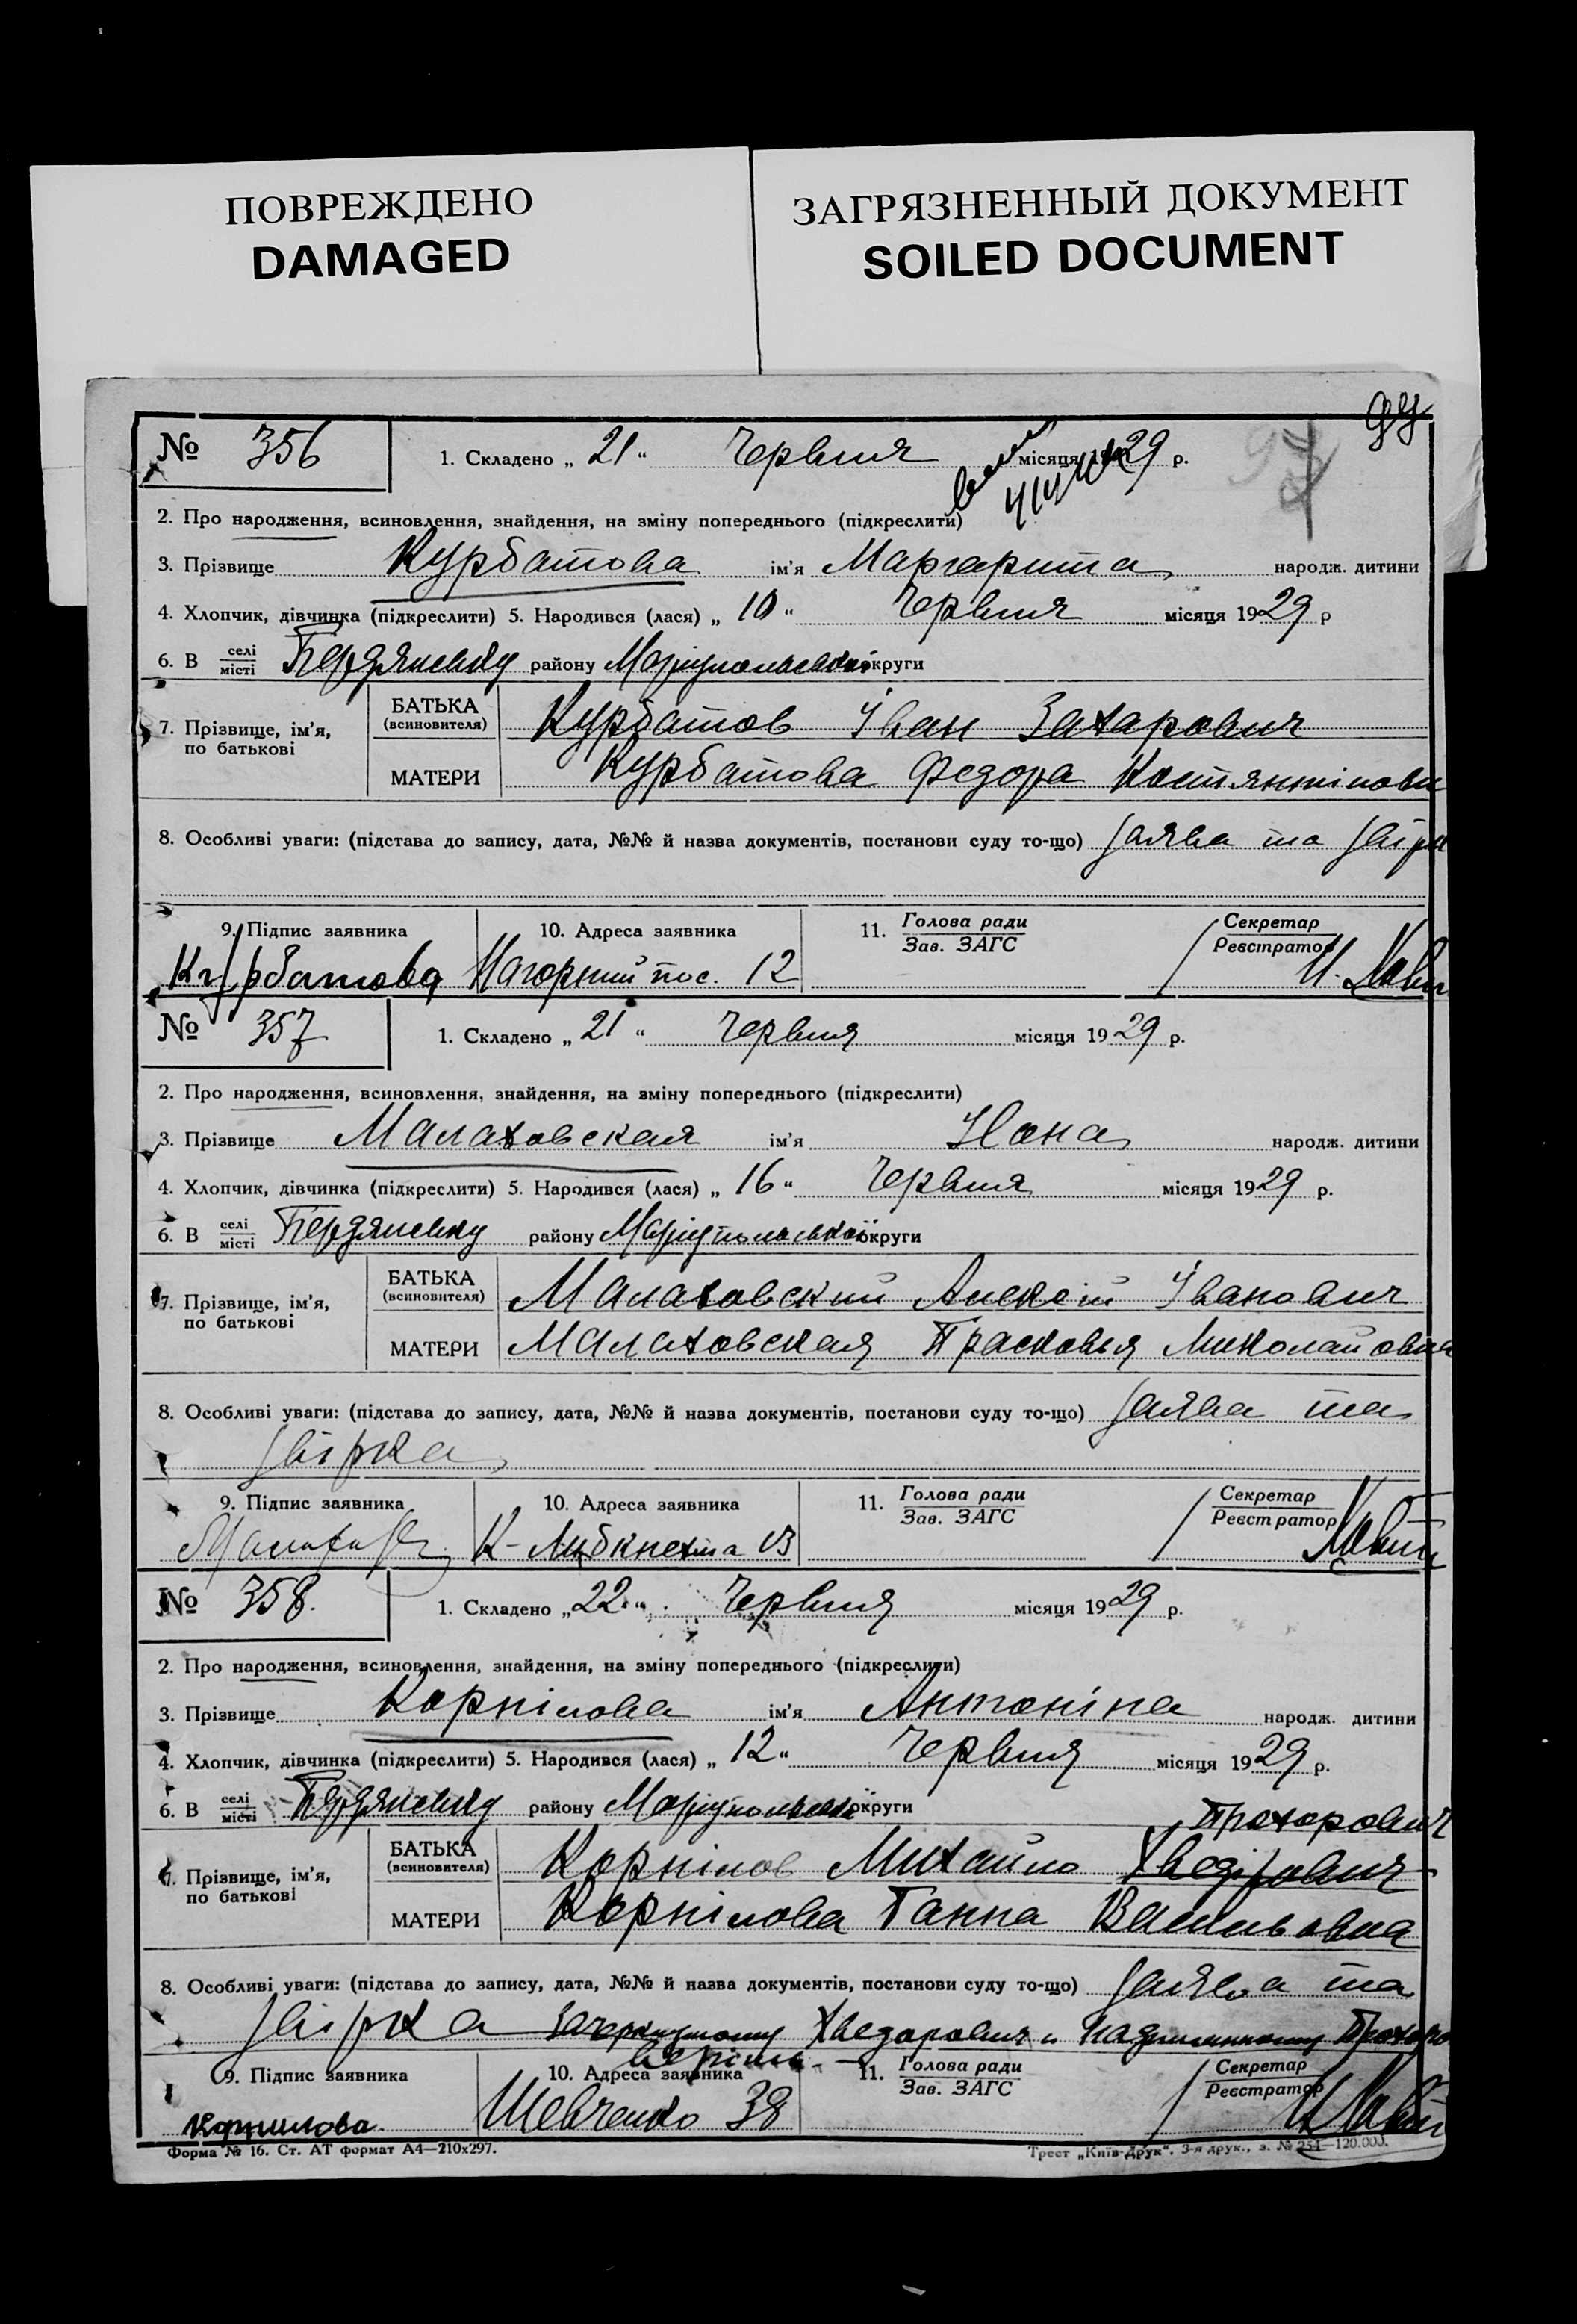 ПОВРЕЖДЕНО
DAMAGED
ЗАГРЯЗНЕННЫЙ ДОКУМЕНТ
SOILED DOCUMENT
99
№ 356 1. Складено „ 21 “ Червня місяця 1929 р.
2. Про народження, всиновлення, знайдення, на зміну попереднього (підкреслити)
3. Прізвище Курбатова ім'я Маргарита народж. дитини
4. Хлопчик, дівчинка (підкреслити) 5. Народився (лася) „ 10 “ Червня місяця 1929 р
6. В селі місті Бердянську району Маріупольської округи
7. Прізвище, ім'я, по батькові
БАТЬКА (всиновителя) Курбатов Іван Захарович
МАТЕРИ Курбатова Федора Костянтіновн
8. Особливі уваги: (підстава до запису, дата, №№ й назва документів, постанови суду то-що) Заява та звірк
9. Підпис заявника 10. Адреса заявника 11. Голова ради Зав. ЗАГС Секретар Реєстратор
Курбатова Нагорний пос. 12
№ 357 1. Складено „ 21 “ Червня місяця 1929 р.
2. Про народження, всиновлення, знайдення, на зміну попереднього (підкреслити)
3. Прізвище Малаховская ім'я Нона народж. дитини
4. Хлопчик, дівчинка (підкреслити) 5. Народився (лася) „ 16 “ Червня місяця 1929 р.
6. В селі місті Бердянську району Маріупольської округи
7. Прізвище, ім'я, по батькові
БАТЬКА (всиновителя) Малаховский Алексій Іванович
МАТЕРИ Малаховская Прасковья Миколаиовна
8. Особливі уваги: (підстава до запису, дата, №№ й назва документів, постанови суду то-що) Заява та
звірка
9. Підпис заявника 10. Адреса заявника 11. Голова ради Зав. ЗАГС Секретар Реєстратор
К-Либкнехта 13
№ 358. 1. Складено „ 22 “ Червня місяця 1929 р.
2. Про народження, всиновлення, знайдення, на зміну попереднього (підкреслити)
3. Прізвище Корнілова ім'я Антоніна народж. дитини
4. Хлопчик, дівчинка (підкреслити) 5. Народився (лася) „ 12 “ Червня місяця 1929 р.
6. В селі місті Бердянську району Маріупольської округи
Прохорович
7. Прізвище, ім'я, по батькові
БАТЬКА (всиновителя) Корнілов Михайло Хведірович
МАТЕРИ Корнілова Ганна Васильовна
8. Особливі уваги: (підстава до запису, дата, №№ й назва документів, постанови суду то-що) Заява та
звірка Хведорович
9. Підпис заявника 10. Адреса заявника 11. Голова ради Зав. ЗАГС Секретар Реєстратор
Корнилова Шевченко 38
Форма № 16. Ст. АТ формат А4—210х297.
Трест „Київ-Друк“. 3-я друк., з. № 251—120.000.